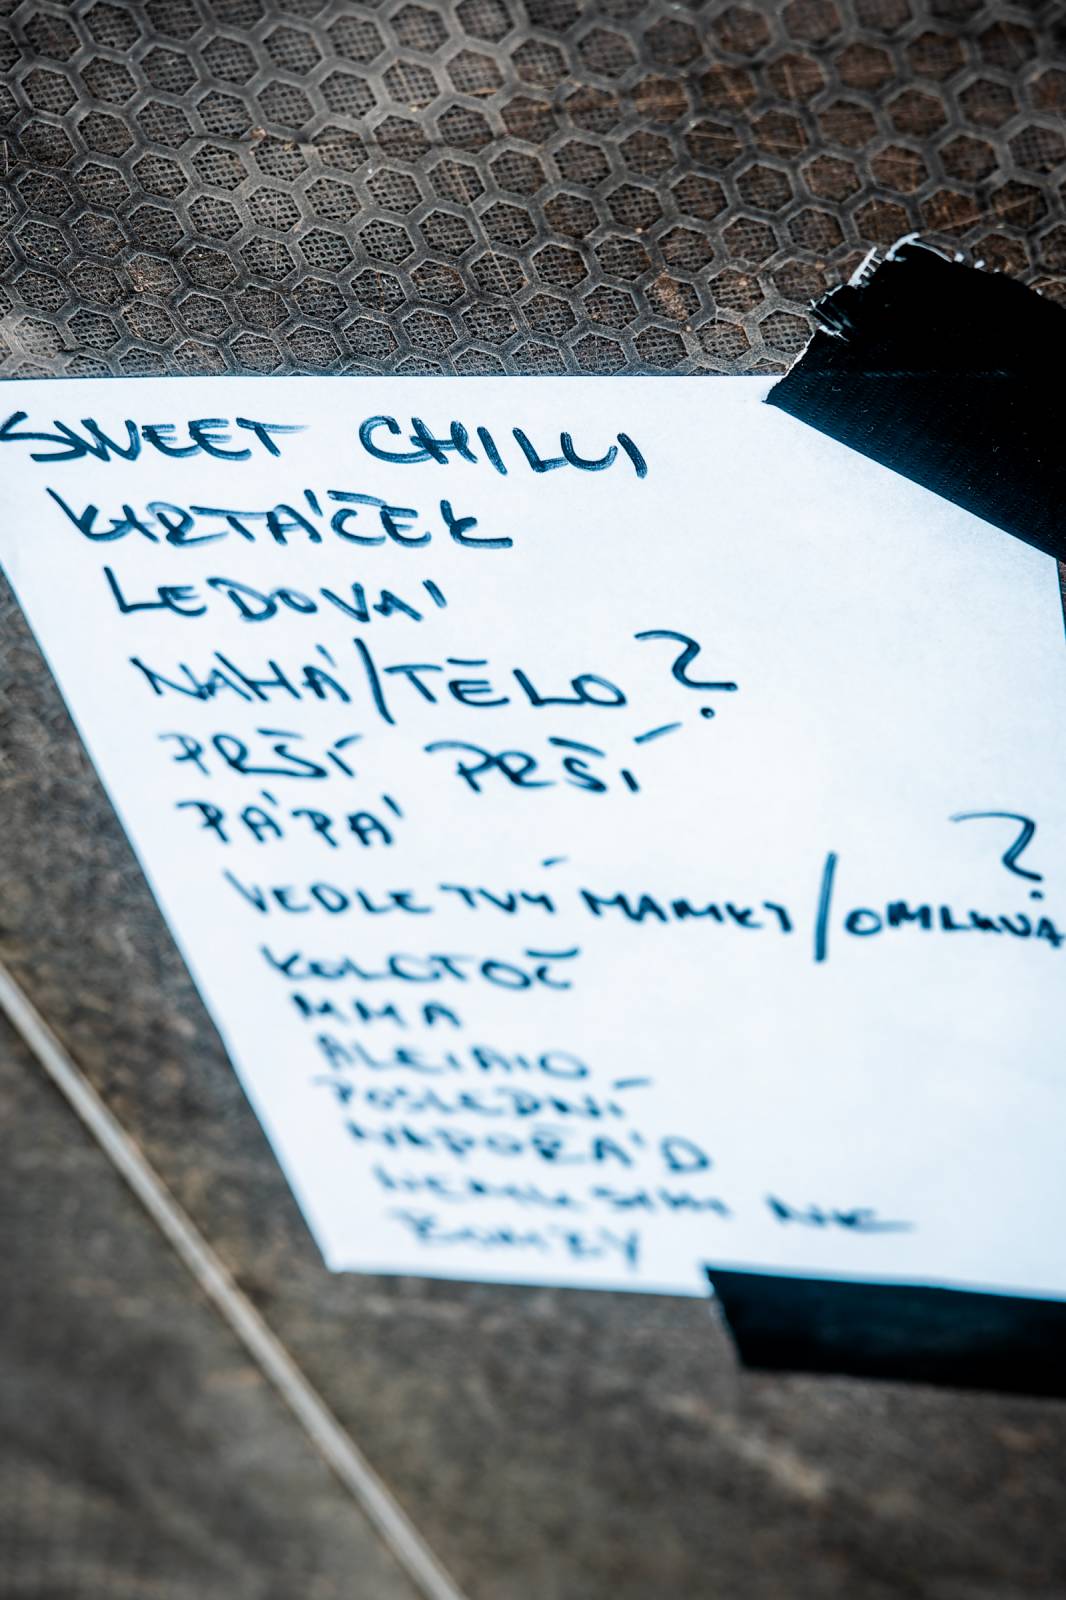 SWEET CHILLI
KIRTÁČEK
LEDOVÁ
NAHÁ/TĚLO?
PRŠÍ PRŠÍ
PÁPÁ
VEDLE TVÝ MAMKY/OMLUVA?
KOLOTOČ
MMA
POSLEDNÍ
NAPOŘÁD
BOMBY